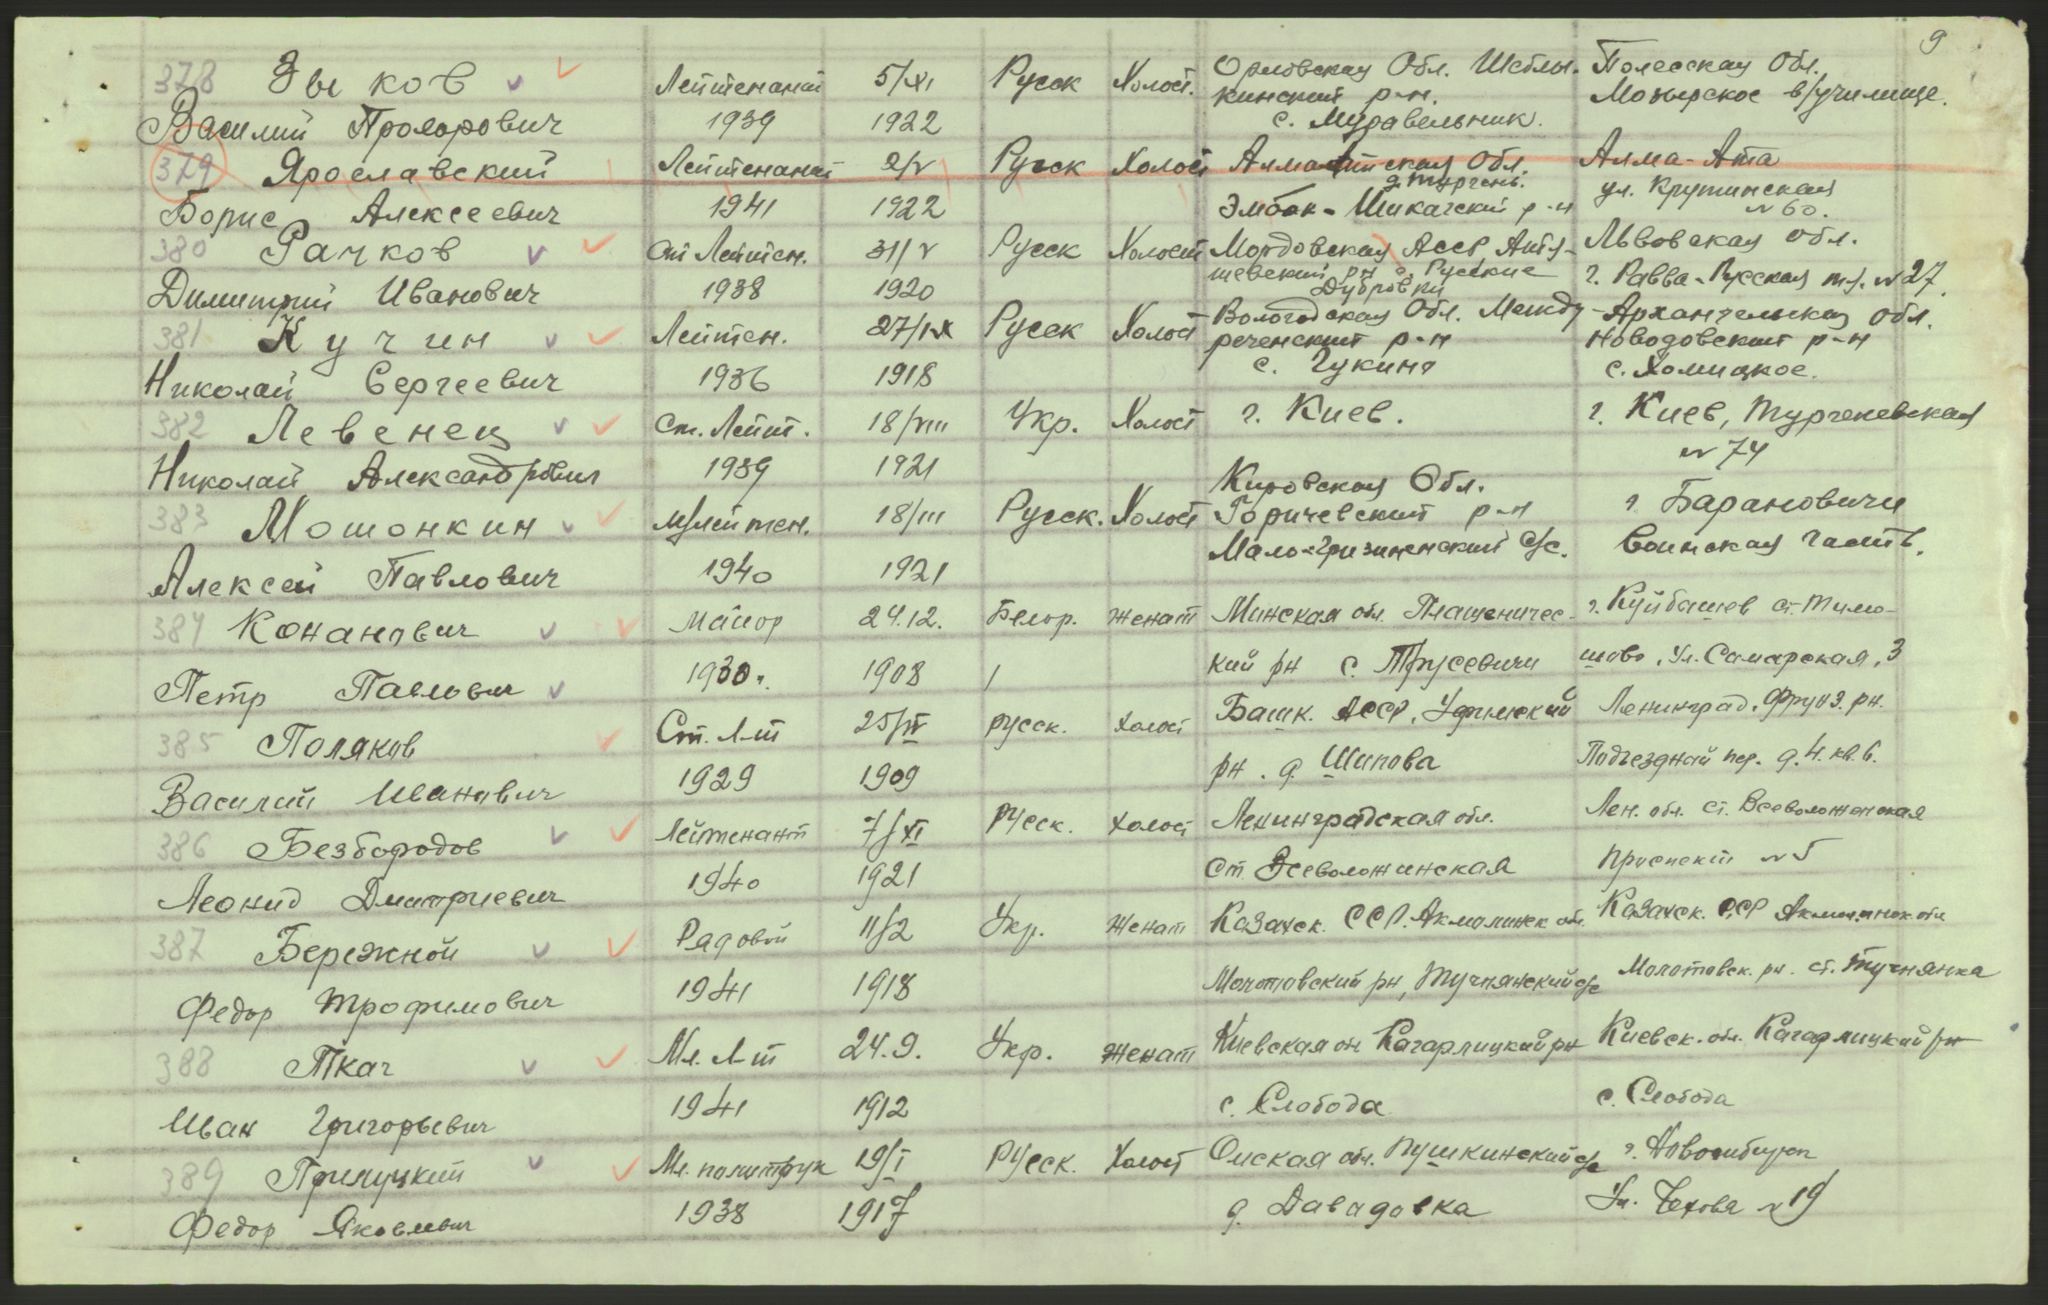 9
378 Зыков Лейтенант 5/XI Русск Холост. Орловская Обл. Шеблы- Полесская Обл.
кинский р-н. Мозырское в/училище.
Василий Прохорович 1939 1922 с. Муравельник.
379 Ярославский Лейтенант 2/V Русск Холост Алмаатинская Обл. Алма-Ата
д. Тургень. ул. Крутинская
Борис Алексеевич 1941 1922 р-н №60.
380 Рачков Ст Лейтен. 31/V Русск Холост Мордовская Асср Атя- Львовская Обл.
шевский рн с. Русские г. Равва-Русская №27.
Димитрий Иванович 1938 1920 Дубровки
381 Кучин Лейтен. 27/IX Русск Холост Вологодская Обл. Между- Архангельская Обл.
реченский р-н р-н
Николай Сергеевич 1936 1918 с. Чукино с. Холмицкое.
382 Левенец Ст. Лейт. 18/VIII Укр. Холост г. Киев. г. Киев, Тургеневская
№ 74
Николай Александрович 1939 1921
Кировская Обл.
383 Мошонкин м/лейтен. 18/III Русск. Холост р-н г. Барановичи
С/с. Воинская часть.
Алексей Павлович 1940 1921
384 Конанович Майор 24.12. Белор. женат Минская обл. Плащеничес- г. Куйбышев ст. Тима-
Петр Павлович 1930г. 1908 кий рн с. Трусевичи шово, Ул. Самарская, 3
385 Поляков Ст. Л-т 25/IV русск. холост Башк. АССР, Уфимский Ленинград, Фрунз. рн.
Василий Иванович 1929 1909 рн. д. Шипова Подъездной пер. д. 4. кв. 6.
386 Безбородов Лейтенант 7/XI Русск. холост Ленинградская обл. Лен. обл. ст. Всеволоженская
Леонид Дмитриевич 1940 1921 Ст. Всеволожинская проспект №5
387 Бережной Рядовой 11/2 Укр. Женат Казахск. ССР. Акмолинск обл. Казахск. ССР Акмолинск обл
Федор Трофимович 1941 1918 Молотовский рн, с/с Молотовск. рн. ст.
388 Ткач Мл. Л-т 24.9. Укр. женат Киевская обл Кагарлицкий рн Киевск. обл. Кагарлицкий рн
Иван Григорьевич 1941 1912 с. Слобода с. Слобода
389 Прилуцкий Мл. политрук 19/I Русск. Холост Омская обл. Пушкинский с/с г. Новосибирск
Федор Яковлевич 1938 1917 д. Давадовка Ул. Чехова №19